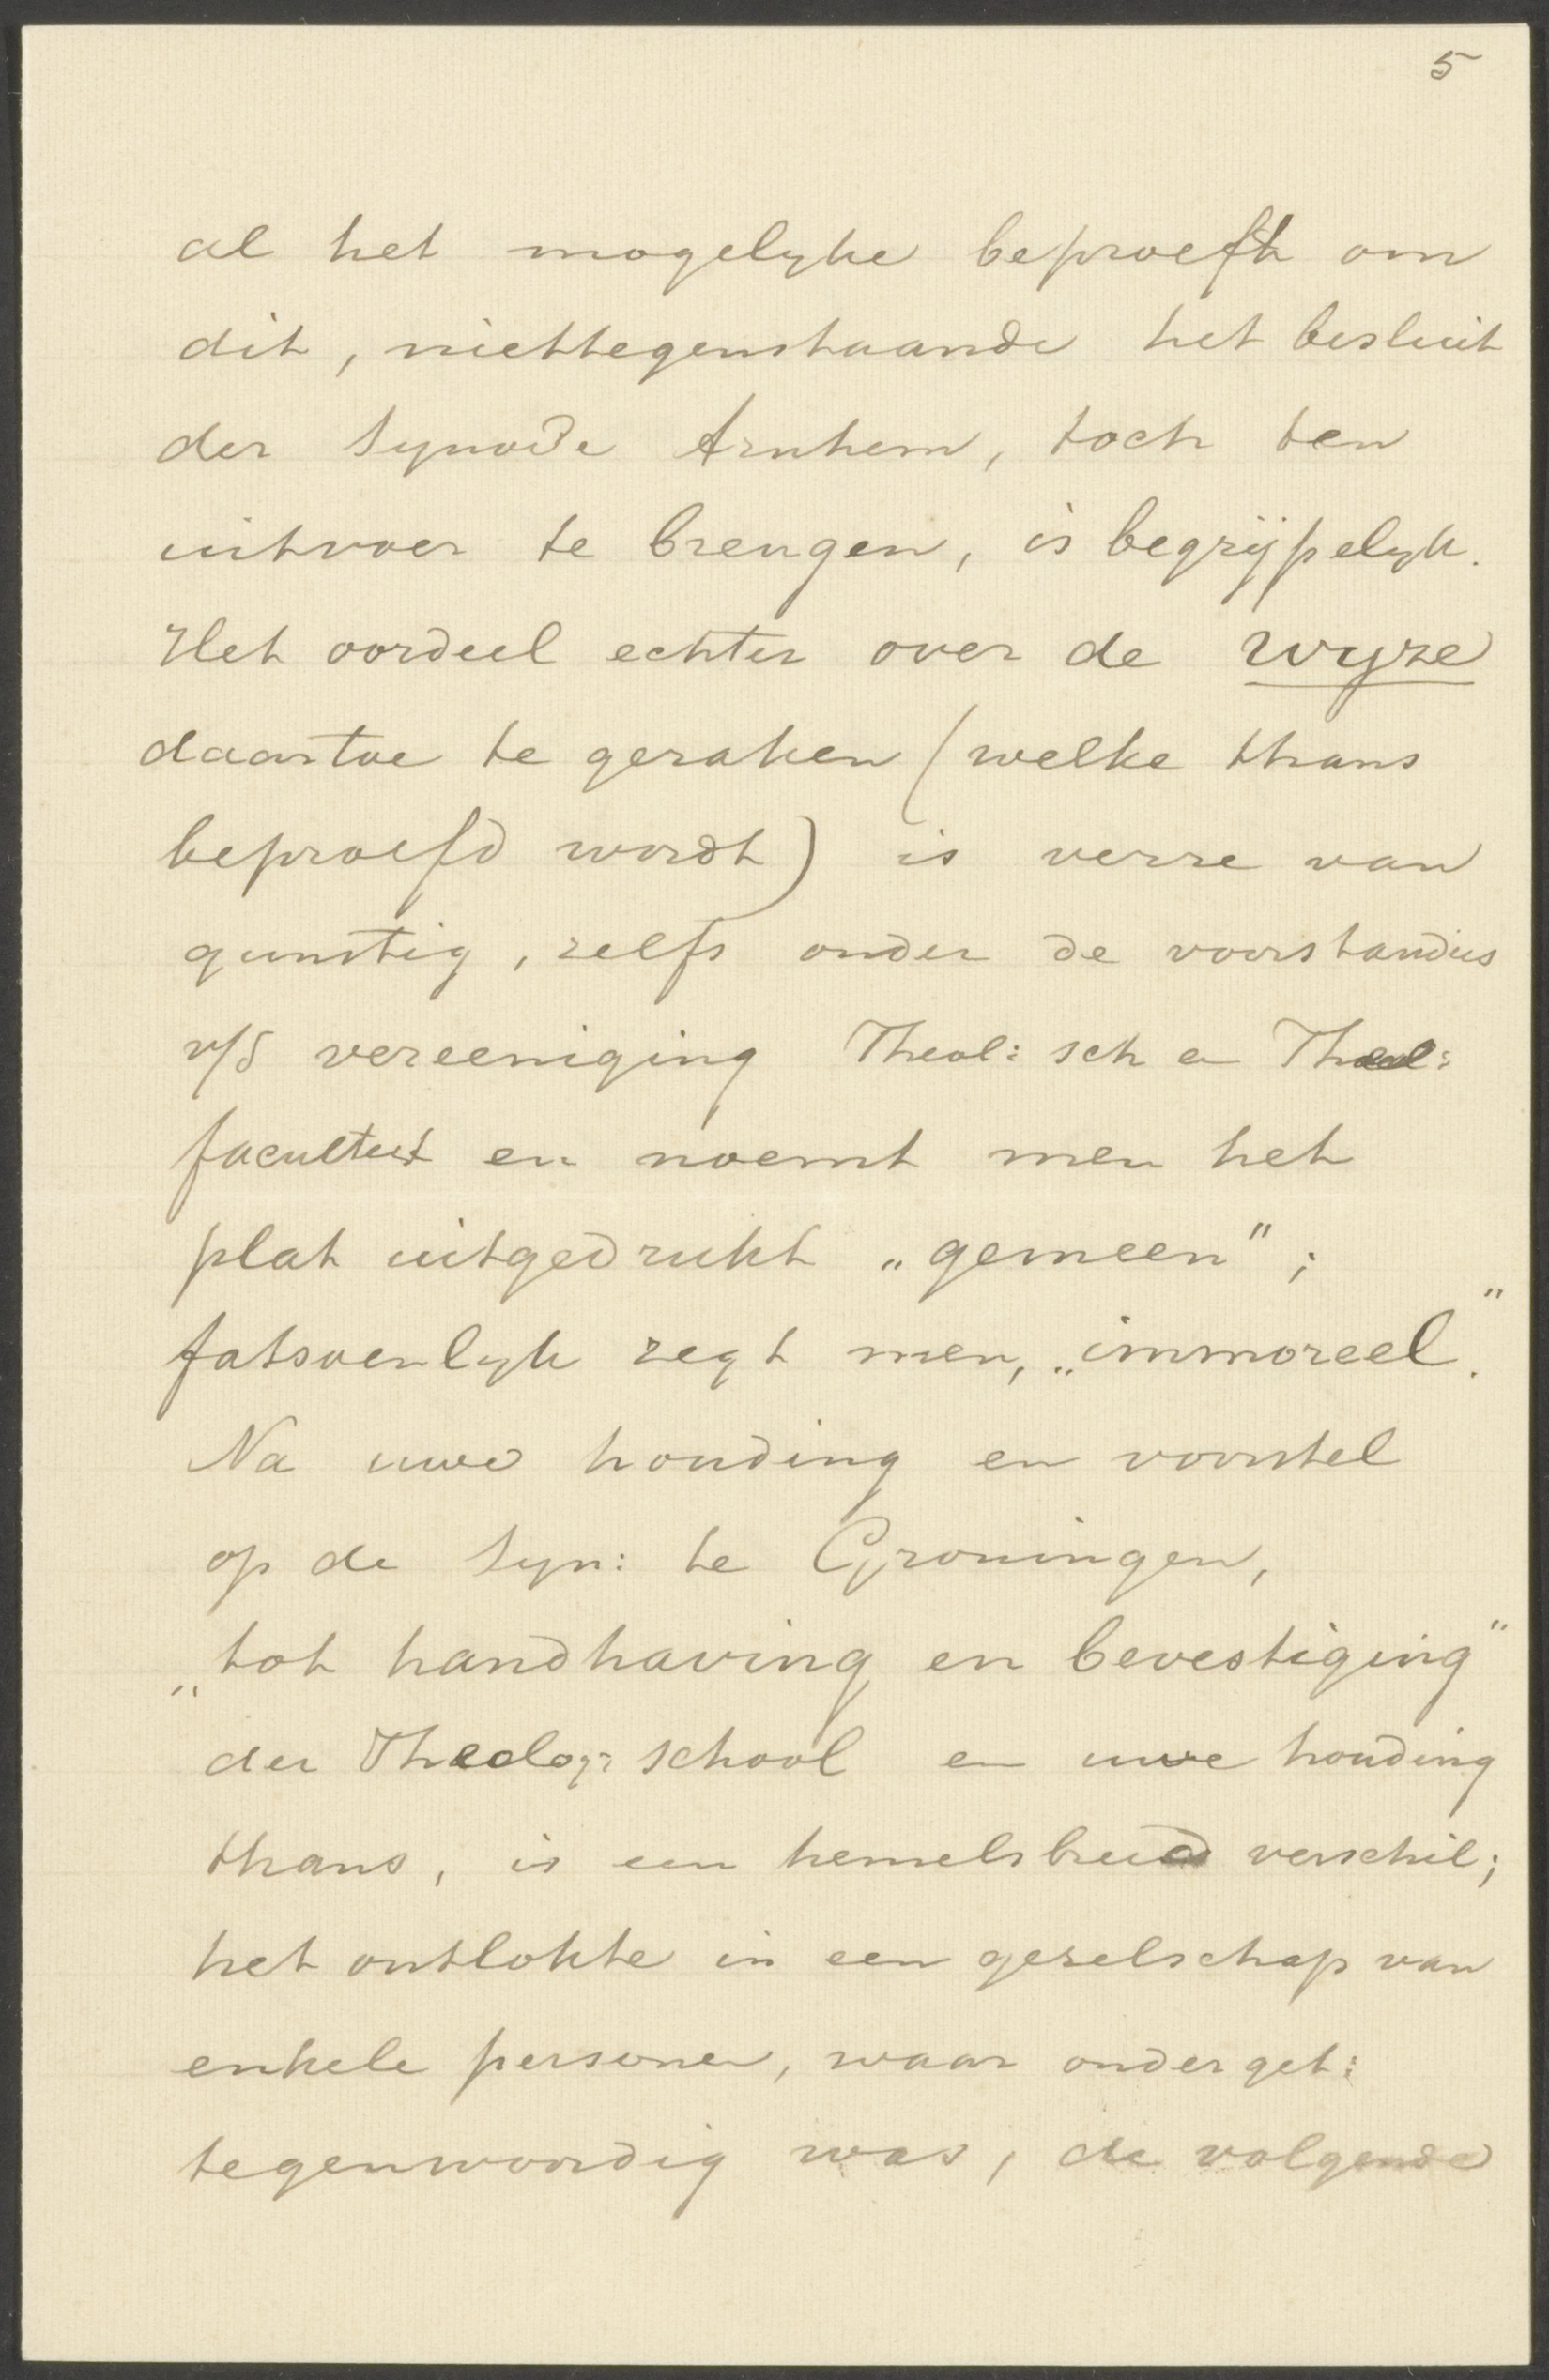 5
al het mogelyke beproeft om
dit, niettegenstaande het besluit
der Synode Arnhem, toch ten
uitvoer te brengen, is begrijpelyk.
Het oordeel echter over de wyze
daartoe te geraken (welke thans
beproefd wordt) is verre van
gunstig, zelfs onder de voorstanders
v/d vereeniging Theol: sch en Theol:
faculteit en noemt men het
plat uitgedrukt „gemeen";
fatsoenlyk zegt men, „immoreel."
Na uwe houding en voorstel
op de Syn: te Groningen,
„tot handhaving en bevestiging"
der Theolog: School en uwe houding
thans, is een hemelsbreed verschil;
het ontlokte in een gezelschap van
enkele personen, waar onderget:
tegenwoordig was, de volgende